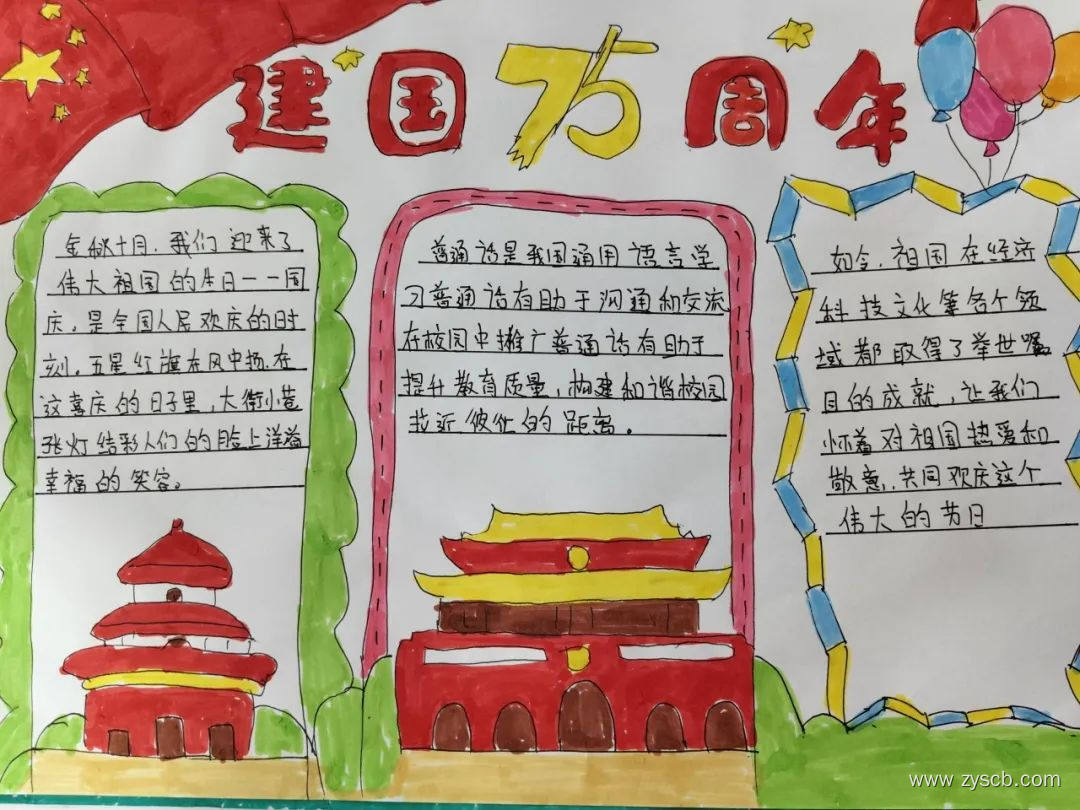 建国75周年
金秋十月，我们迎来了
伟大祖国的生日——国
庆，是全国人民欢庆的时
刻，五星红旗在风中扬，在
这喜庆的日子里，大街小巷
张灯结彩人们的脸上洋溢
幸福的笑容。
普通话是我国通用语言学
习普通话有助于沟通和交流
在校园中推广普通话有助于
提升教育质量，构建和谐校园
拉近彼此的距离。
如今，祖国在经济
科技文化等各个领
域都取得了举世瞩
目的成就，让我们
怀着对祖国热爱和
敬意，共同欢庆这个
伟大的节日
www.zyscb.com